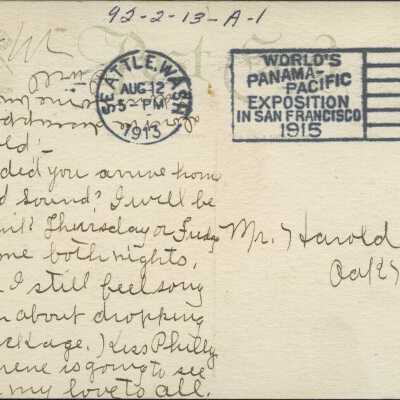 92-2-13-A-1
SEATTLE, WASH.
AUG 12
5- PM
1913
WORLD'S
PANAMA-
PACIFIC
EXPOSITION
IN SAN FRANCISCO
1915
ld-
ded you arrive home
d sound? I will be
Thursday or Friday
me both nights.
I still feel
about dropping
ckage.) Kiss Philly
rene is going to see
my love to all.
Mr. Harold
Oak